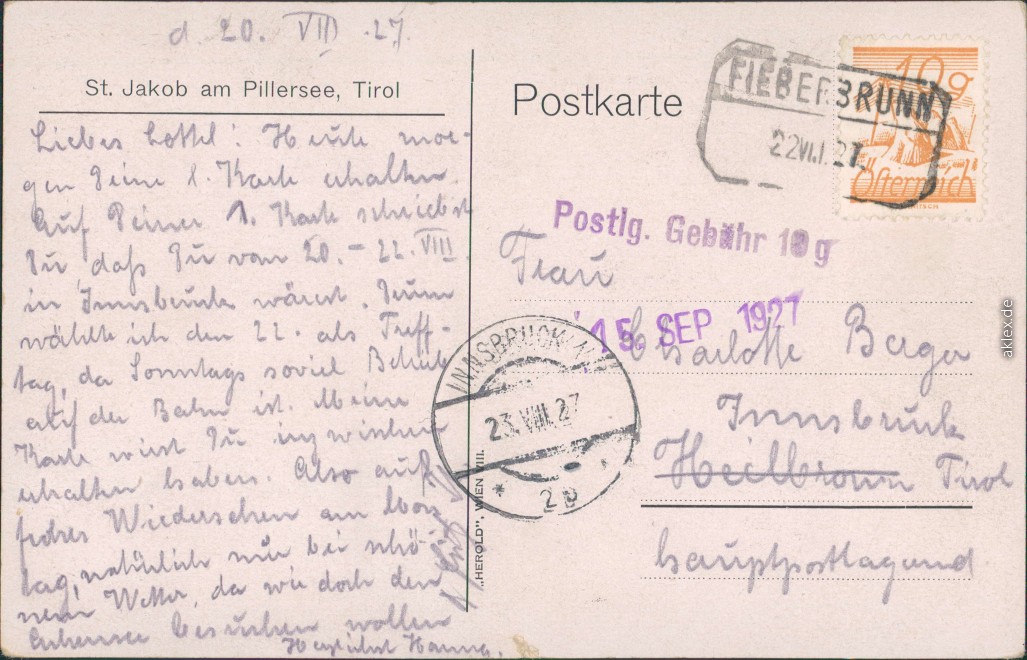 d. 20. VIII. 27.
St. Jakob am Pillersee, Tirol
Liebes Lottel! Heute mor-
gen Deine 1. Karte erhalten.
Auf Deiner 1. Karte schriebst
Du, daß Du vom 20. – 22. VIII
in Innsbruck wärest. Drum
wählte ich den 22. als Treff-
tag, da Sonntags soviel Betrieb
auf der Bahn ist. Meine
Karte wirst Du inzwischen
erhalten haben. Also auf
frohes Wiedersehen am Mon-
tag, natürlich nur bei schö-
nem Wetter, da wir doch den
Achensee besuchen wollen
Herzlichst Hanna.
"HEROLD", WIEN VIII.
Postkarte
FIEBERBRUNN
22.VIII.27
10g
Österreich
Postlg. Gebühr 10 g
15. SEP 1927
INNSBRUCK
23.VIII.27
* 2b *
Frau
Charlotte Berger
Innsbruck
Heilbronn Tirol
hauptpostlagernd
aklex.de